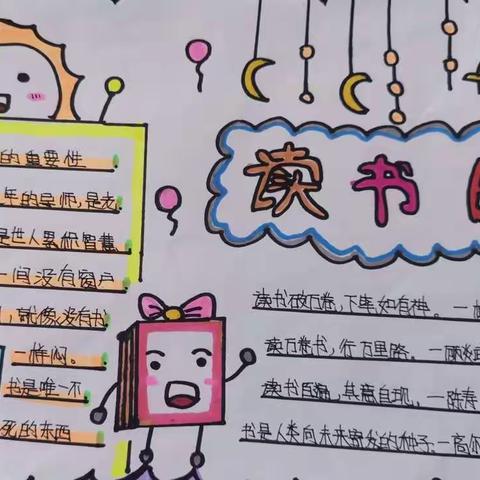 读书
的重要性
年的导师,是老
是世人累积智慧
一间没有窗户
,就像没有书
一样闷。
书是唯一不
死的东西
读书破万卷,下笔如有神。一
读万卷书,行万里路。一
读书百遍,其意自现。一陈寿
书是人类向未来寄发的种子一高尔